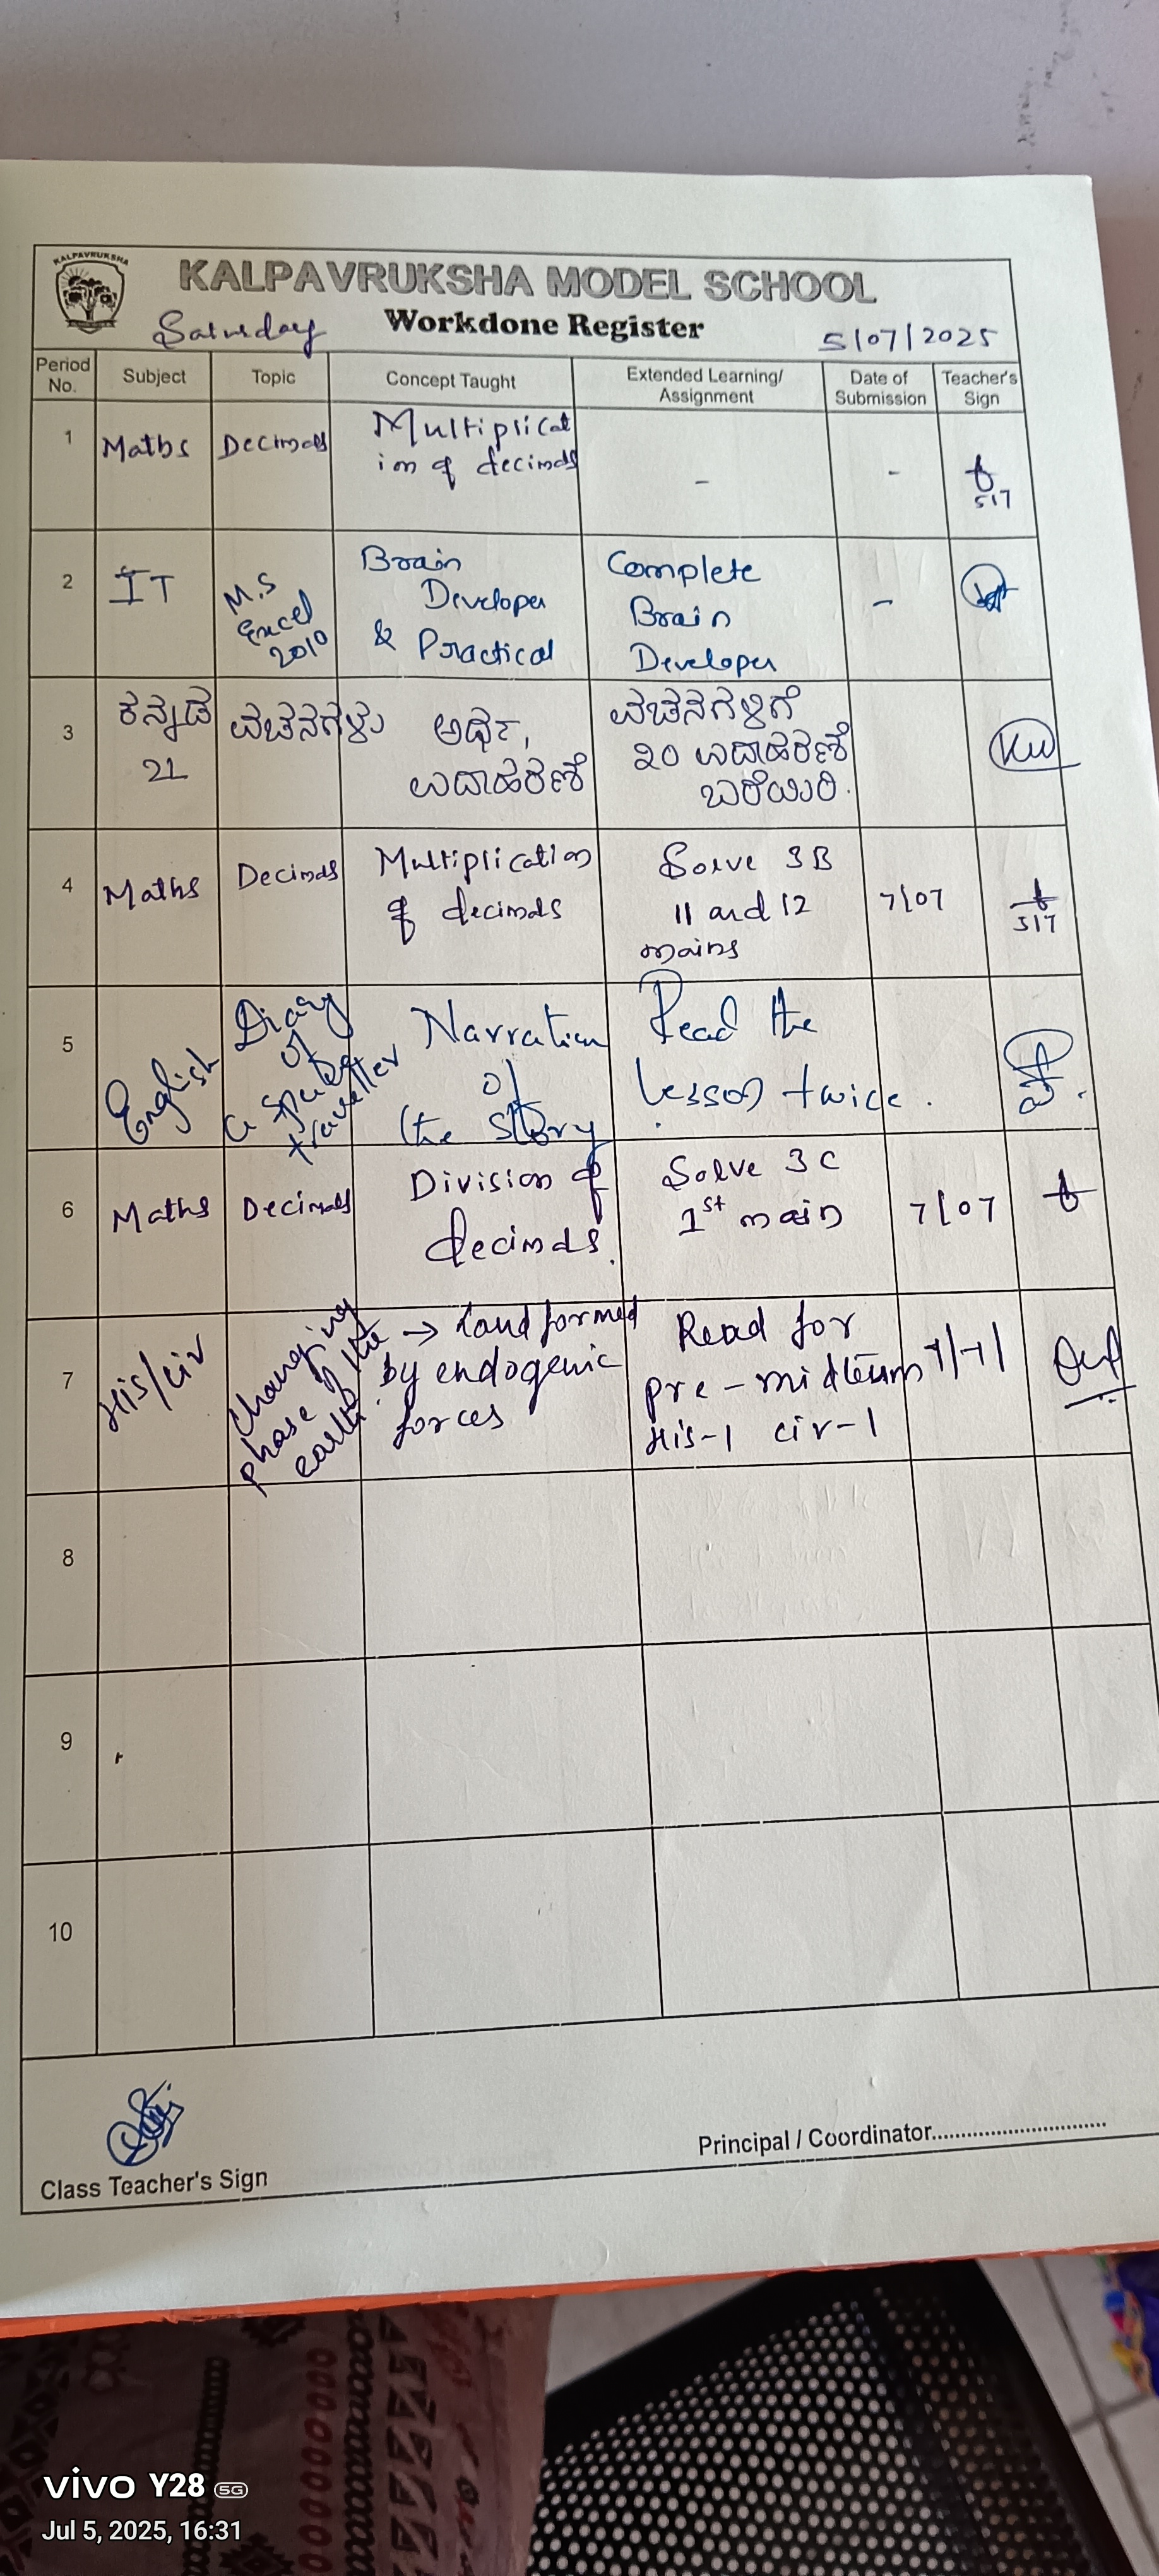 KALPAVRUKSHA
KALPAVRUKSHA MODEL SCHOOL
Saturday Workdone Register 5/07/2025
Period No. Subject Topic Concept Taught Extended Learning/ Assignment Date of Submission Teacher's Sign
1 Maths Decimals Multiplicat
ion of decimals - -
5/7
2 IT M.S Brain Complete
Excel Developer Brain -
2010 & Practical Developer
3 ಕನ್ನಡ ವಚನಗಳು ಅರ್ಥ, ವಚನಗಳಿಗೆ
2L ಉದಾಹರಣೆ ೨೦ ಉದಾಹರಣೆ
ಬರೆಯಿರಿ.
4 Maths Decimals Multiplication Solve 3B
of decimals 11 and 12 7/07
mains 5/7
5 English Diary Narration Read the
of of lesson twice.
a space the story
traveller
6 Maths Decimals Division of Solve 3C
decimals. 1st main 7/07
7 His/civ Changing → Land formed Read for
phase of the by endogenic pre-midterm
earth forces His-1 civ-1
8
9
10
Class Teacher's Sign Principal / Coordinator..............................
vivo Y28 5G
Jul 5, 2025, 16:31